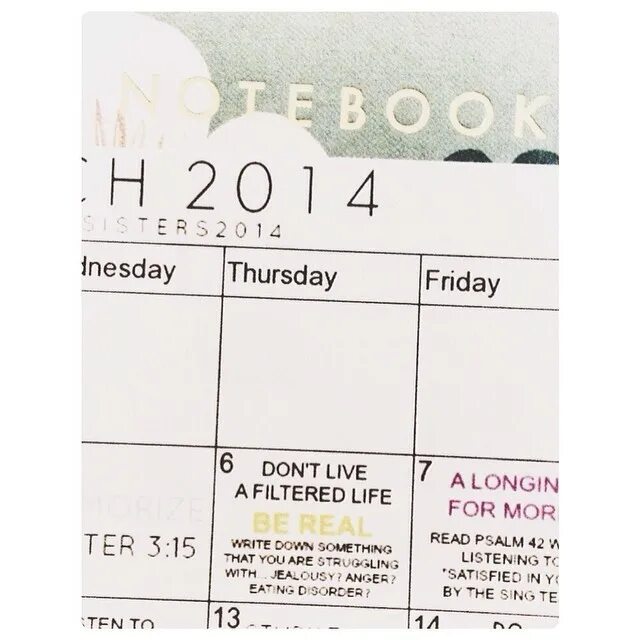 NOTEBOOK
CH 2014
SISTERS2014
dnesday Thursday Friday
6 DON'T LIVE
A FILTERED LIFE
BE REAL
WRITE DOWN SOMETHING
THAT YOU ARE STRUGGLING
WITH...JEALOUSY? ANGER?
EATING DISORDER?
7 A LONGIN
FOR MOR
READ PSALM 42 W
LISTENING TO
"SATISFIED IN YO
BY THE SING TE
MORIZE
TER 3:15
TEN TO
13
14 DO